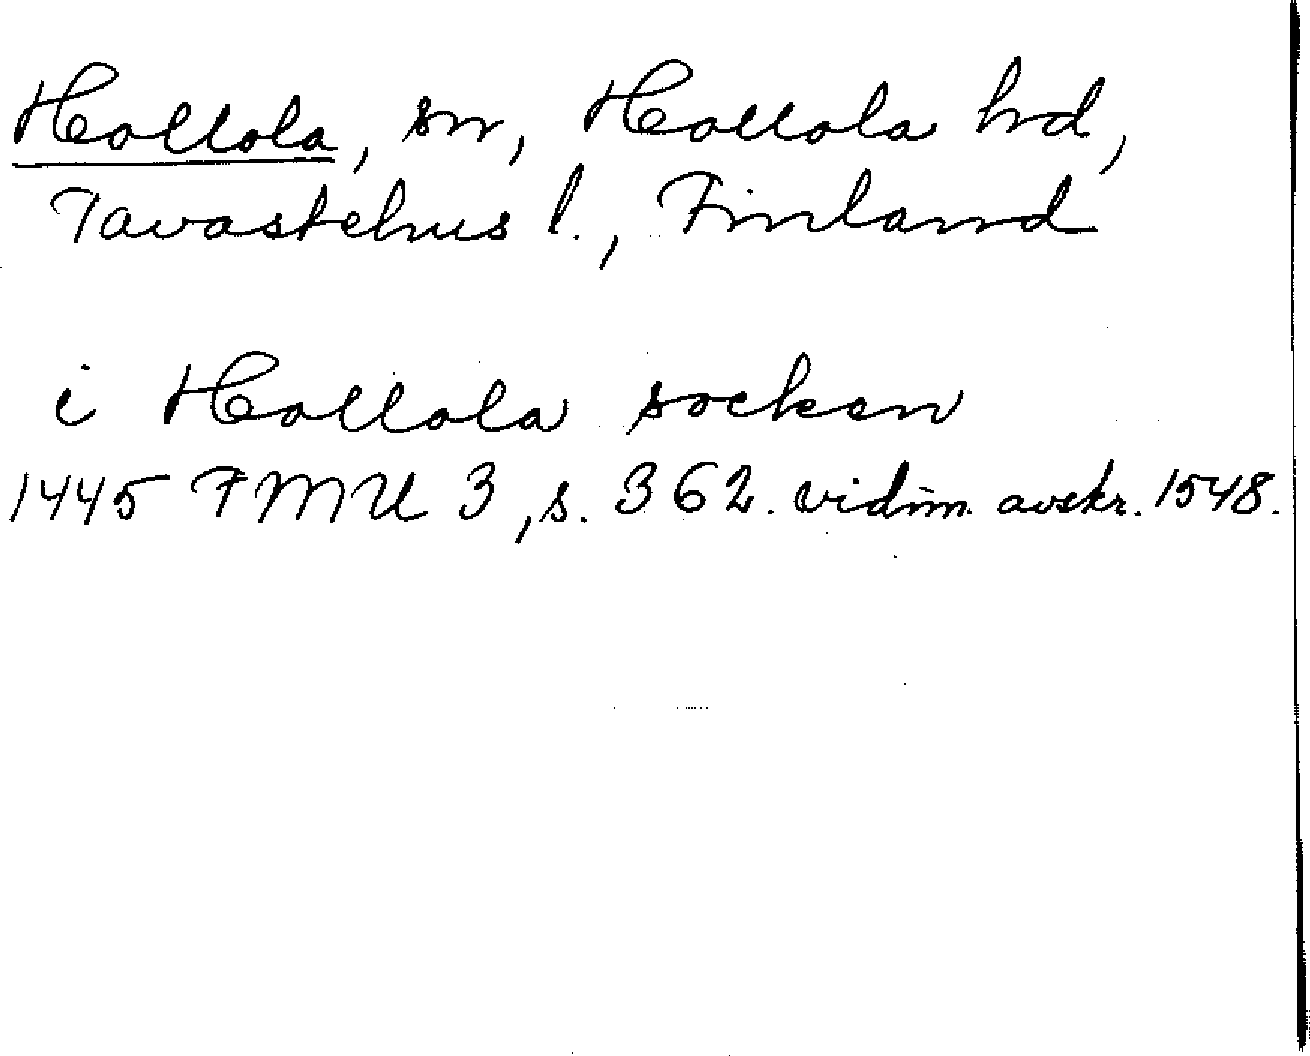 Hollola, sn, Hollola hd,
Tavastehus l., Finland
i Hollola socken
1445 FMU 3, s. 362. vidim. avskr. 1548.